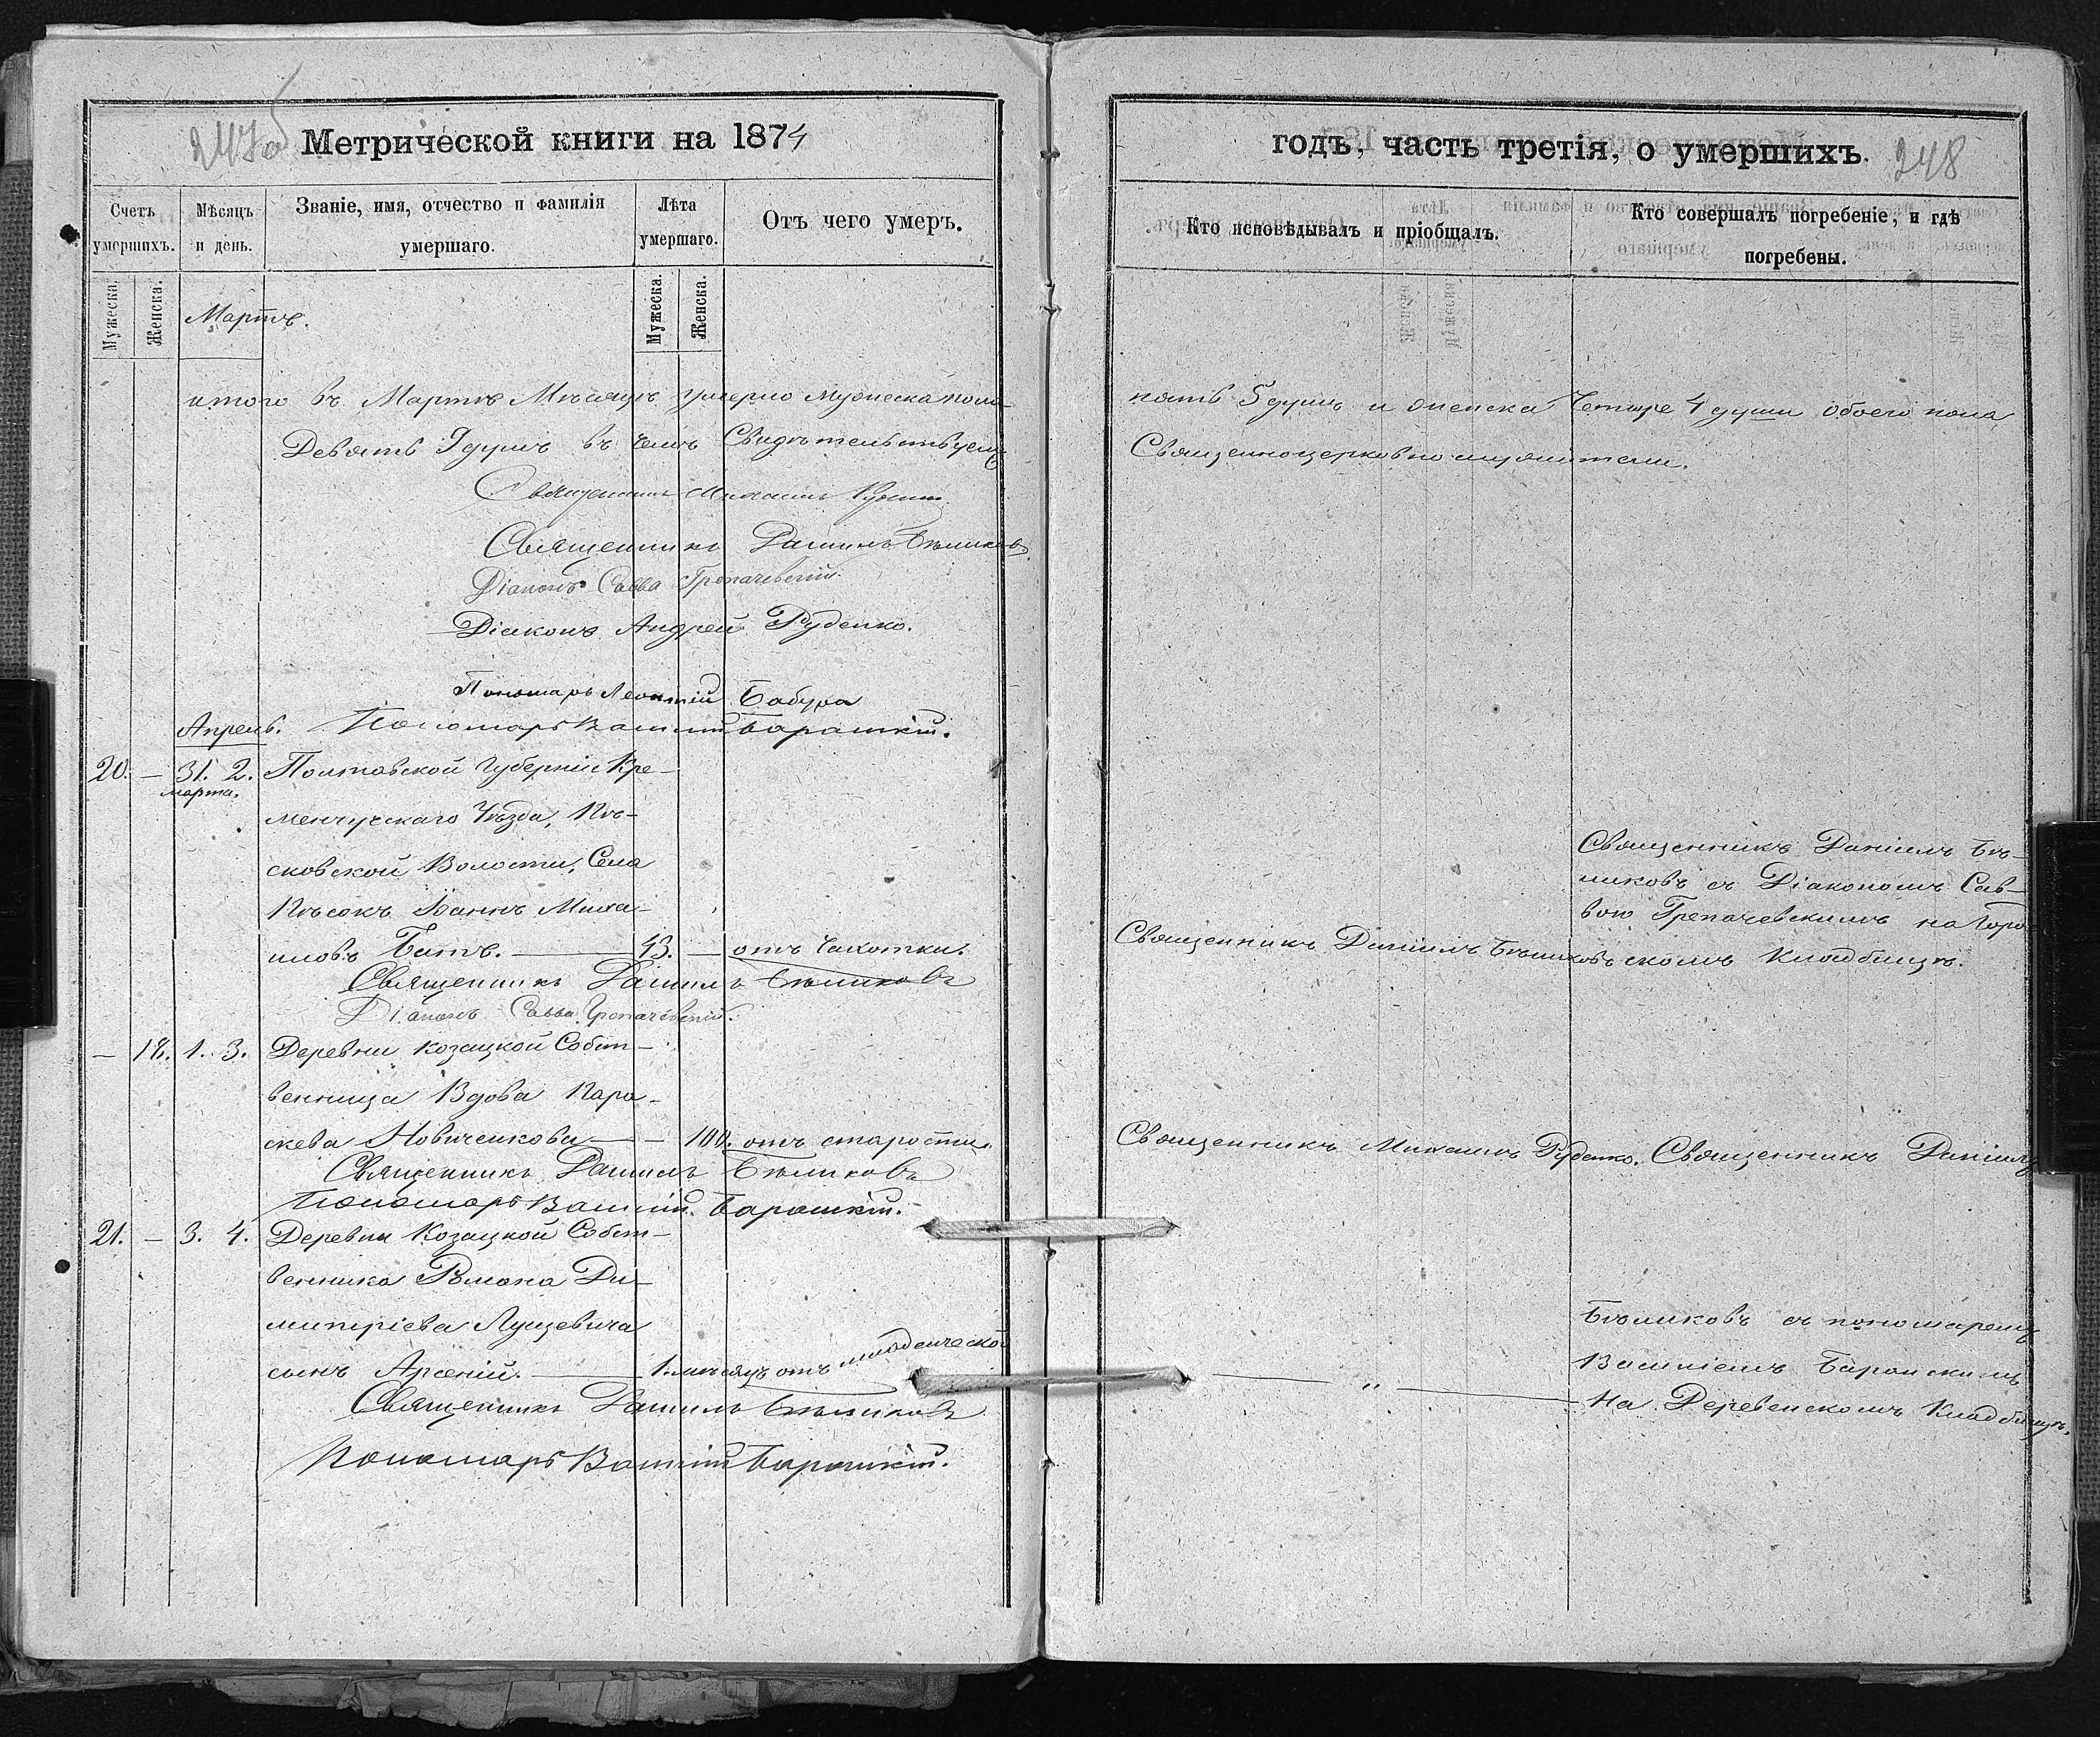 247об
Метрической книги на 1874
Счетъ умершихъ.
Мѣсяцъ и день.
Званіе, имя, отчество и фамилія умершаго.
Лѣта умершаго.
Отъ чего умеръ.
Мужеска.
Женска.
Мужеска.
Женска.
Мартъ.
итого въ Мартѣ Мѣсяцѣ умерло мужеска пола
Девять 9 душъ въ чемъ Свидѣтельствуемъ
Священникъ Михаилъ
Священникъ Даніилъ Бѣликовъ
Діаконъ Савва Грепачевскій.
Діаконъ Андрей Руденко.
Пономарь Леонтій Бабура
Апрель. Пономарь Василій Барашкій.
20. — 31. 2. Полтавской Губерніи Кре-
марта.
менчугскаго Уѣзда, Пѣ-
сковской Волости, Села
Пѣсокъ Іоаннъ Миха-
иловъ Батъ. — 43. — отъ чахотки.
Священникъ Даніилъ Бѣликовъ
Діаконъ Савва Грепачевскій.
— 18. 1. 3. Деревни Козацкой Собст-
венница Вдова Пара-
скева Новиченкова — — 100. отъ старости.
Священникъ Даніилъ Бѣликовъ
Пономарь Василій Барашкій.
21. — 3. 4. Деревни Козацкой Собст-
венника Романа Ди-
митріева Луцевича
сынъ Арсеній. — 1. мѣсяцъ отъ младенческой
Священникъ Даніилъ Бѣликовъ
Пономарь Василій Барашкій.
годъ, часть третія, о умершихъ.
248
Кто исповѣдывалъ и пріобщалъ.
Кто совершалъ погребеніе, и гдѣ
погребены.
пять 5 душъ и женска Четыре 4 души обоего пола
Священноцерковнослужители.
Священникъ Даніилъ Бѣ-
ликовъ съ Діакономъ Сав-
вою Грепачевскимъ на Город-
Священникъ Даніилъ Бѣликовъ
скомъ Кладбищѣ.
Священникъ Михаилъ Руденко.
Священникъ Даніилъ
Бѣликовъ съ пономаремъ
Василіемъ Барашкимъ
— „ —
На Деревенскомъ Кладбищѣ.